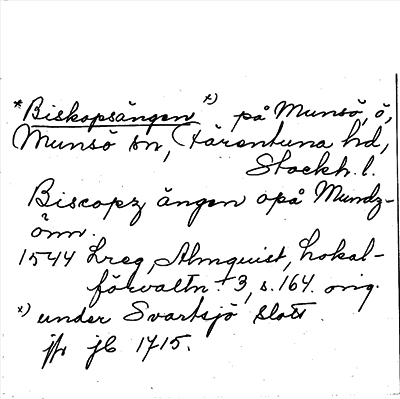 *Biskopsängen x) på Munsö, ö,
Munsö sn, Färentuna hd,
Stockh. l.
Biscopz ängen opå Mundz-
önn.
1544 Lreg Almquist, Lokal-
förvaltn. 3, s. 164. orig.
x) under Svartsjö slott.
jfr jb 1715.